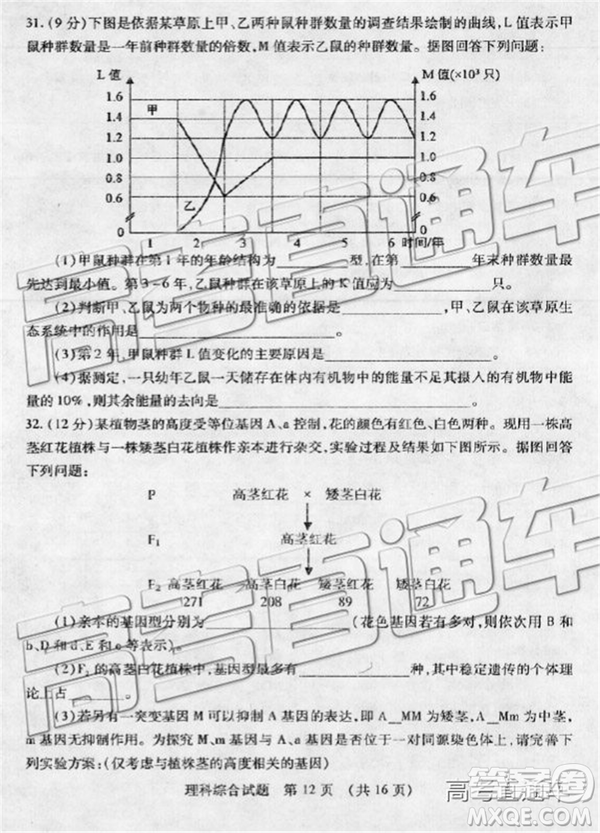 31.(9分)下图是依据某草原上甲、乙两种鼠种群数量的调查结果绘制的曲线,L值表示甲
鼠种群数量是一年前种群数量的倍数,M值表示乙鼠的种群数量。据图回答下列问题:
L值 M值(×10³只)
1.6 甲 1.6
1.4 1.4
1.2 1.2
1.0 1.0
0.8 0.8
0.6 乙 0.6
0 0
1 2 3 4 5 6 时间/年
(1)甲鼠种群在第1年的年龄结构为________型,在第________年末种群数量最
先达到最小值。第3-6年,乙鼠在该草原上的K值应为________只。
(2)判断甲、乙鼠为两个物种的最准确的依据是________,甲、乙鼠在该草原生
态系统中的作用是________。
(3)第2年,甲鼠种群L值变化的主要原因是________。
(4)据测定,一只幼年乙鼠一天储存在体内有机物中的能量不足其摄入的有机物中能
量的10%,则其余能量的去向是________。
32.(12分)某植物茎的高度受等位基因A、a控制,花的颜色有红色、白色两种。现用一株高
茎红花植株与一株矮茎白花植株作亲本进行杂交,实验过程及结果如下图所示。据图回答
下列问题:
P 高茎红花 × 矮茎白花
F₁ 高茎红花
F₂ 高茎红花 高茎白花 矮茎红花 矮茎白花
271 208 89 72
(1)亲本的基因型分别为________(花色基因若用到多对,依次选择使用B和
b、D和d、E和e等表示)。
(2)F₂的高茎白花植株中,基因型最多有________种,其中稳定遗传的个体理
论上占________。
(3)若另有一突变基因M可以抑制A基因的表达,即A__MM为矮茎,A__Mm为中茎,
m基因无抑制作用。为探究M、m与A、a基因是否位于一对同源染色体上,请写出最简便的
实验方案:(仅考虑与植株茎的高度相关的基因)
理科综合试题 第12页 (共16页)
高考直通车
高考直通车
高考直通车
高考直通车